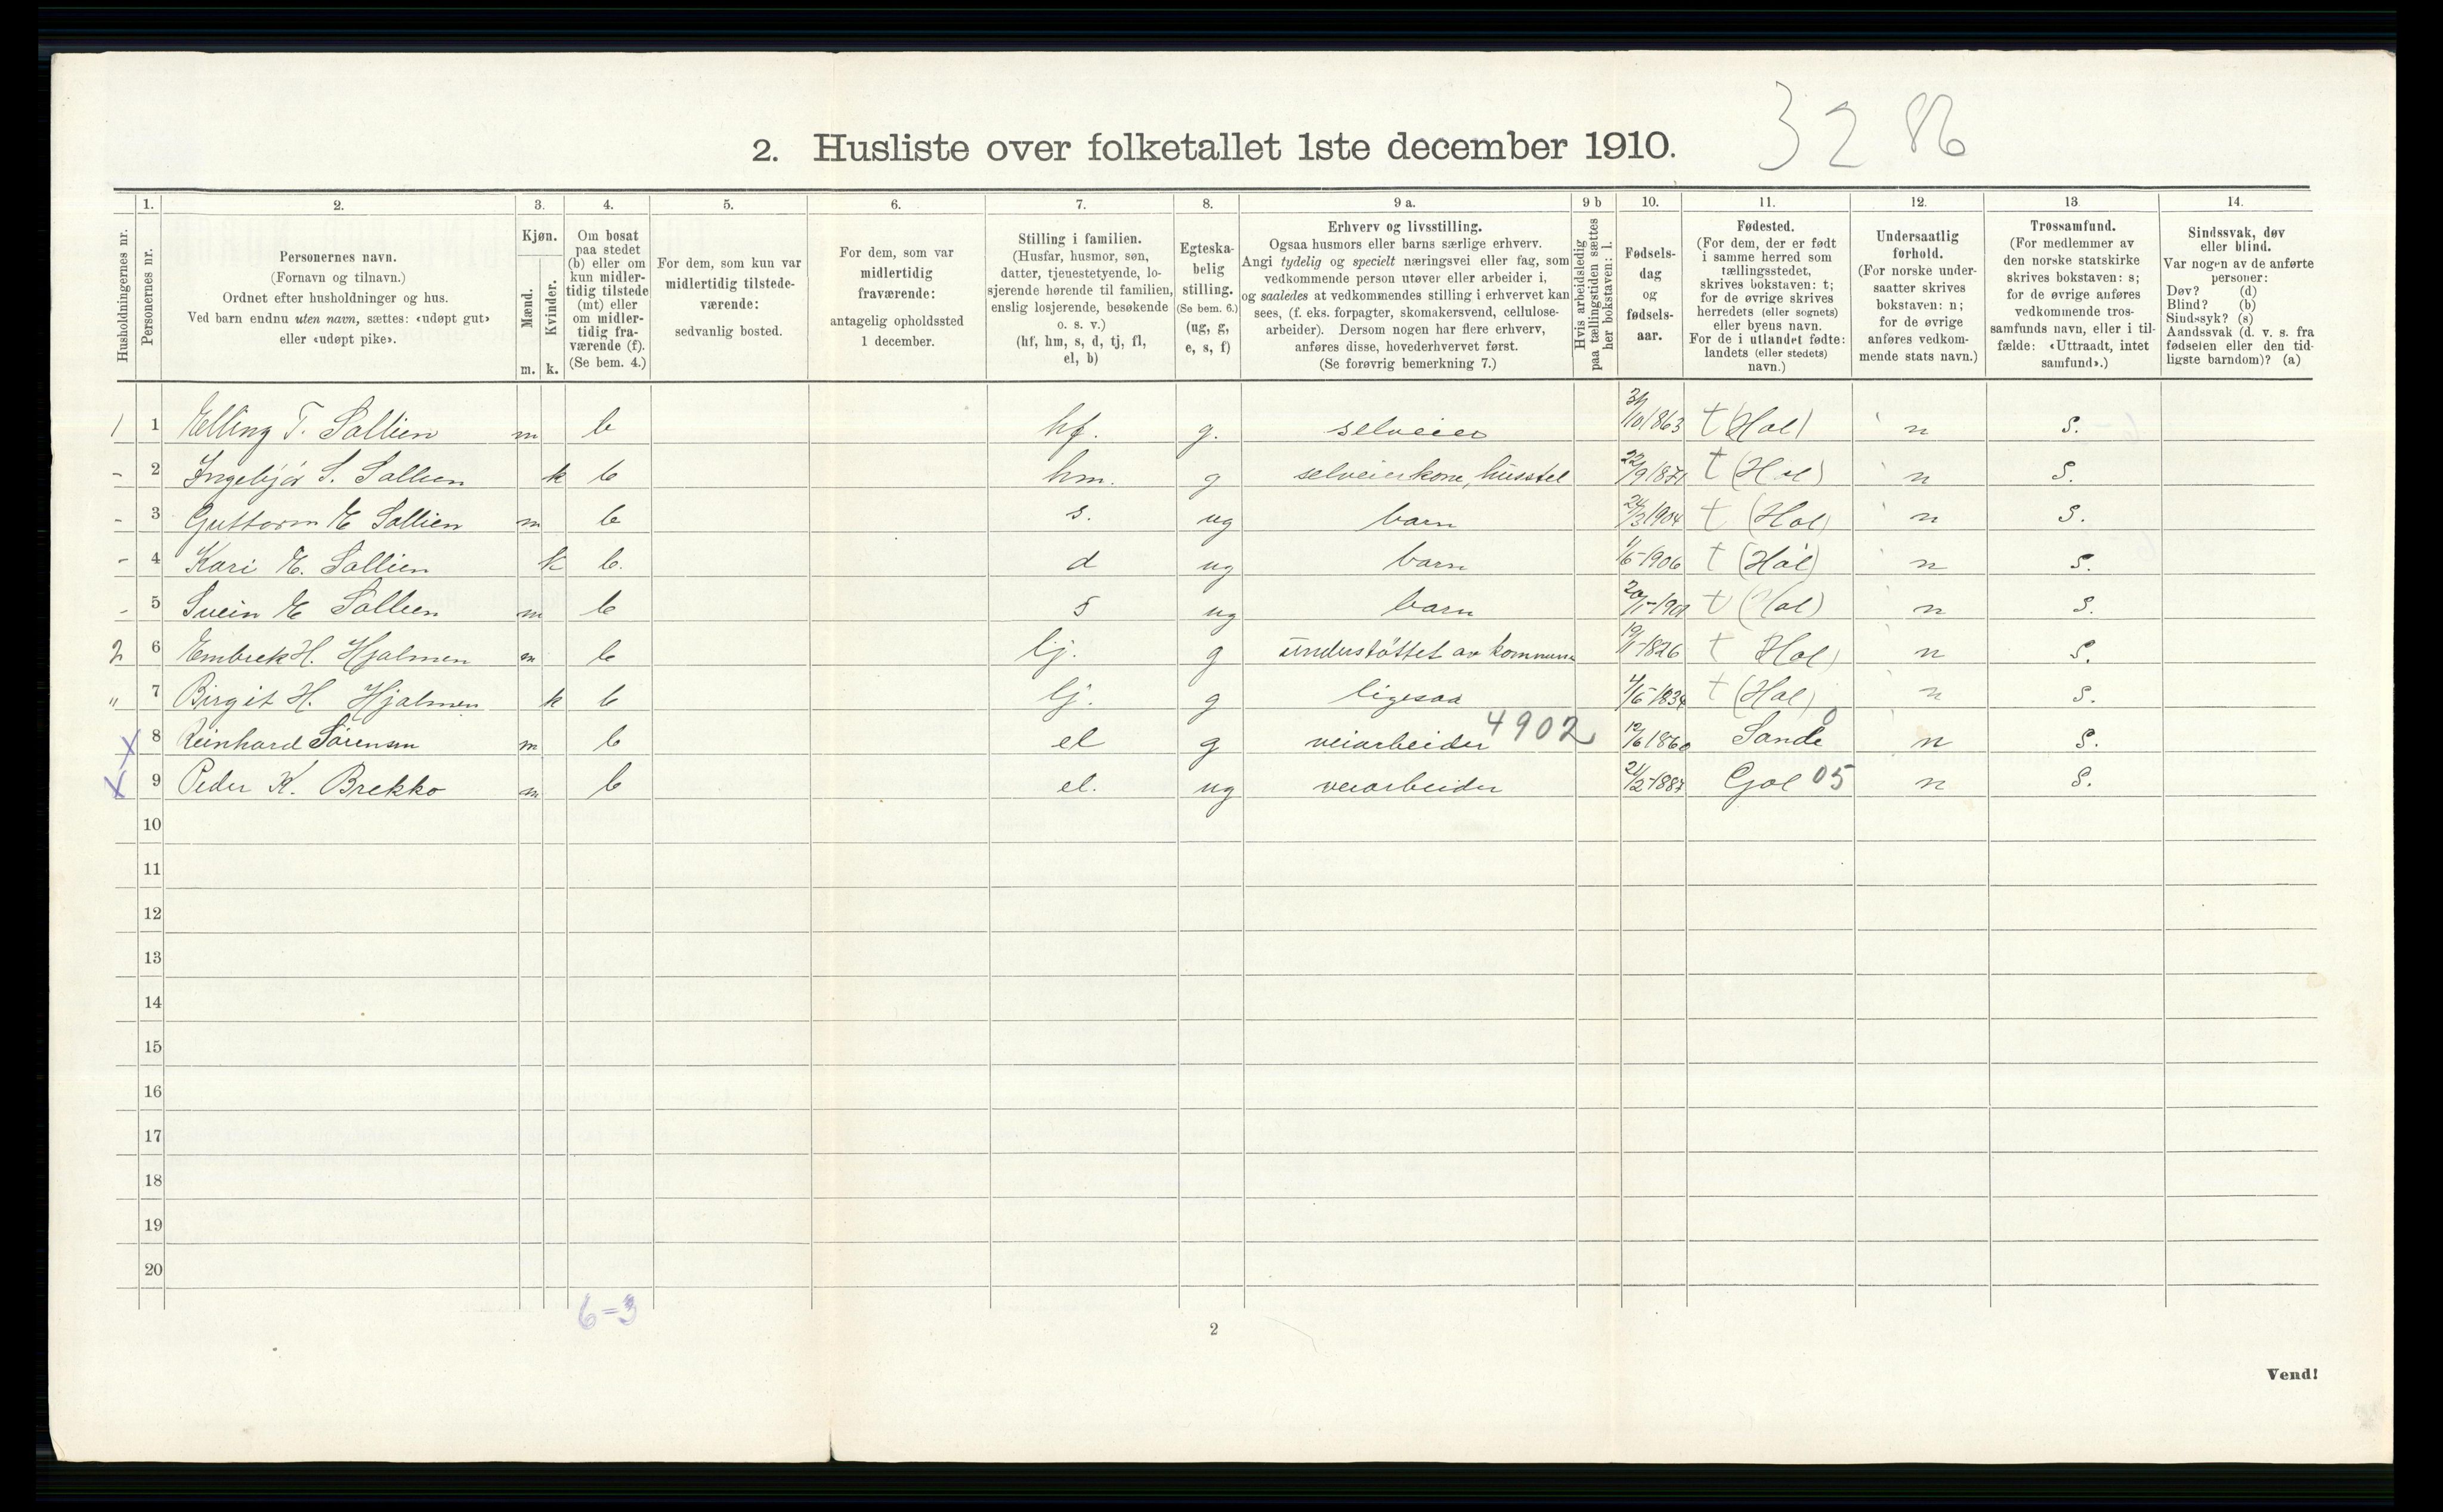 2. Husliste over folketallet 1ste december 1910.
3286
Husholdningernes nr.
1.
Personernes nr.
2.
Personernes navn.
(Fornavn og tilnavn.)
Ordnet efter husholdninger og hus.
Ved barn endnu uten navn, sættes: «udøpt gut»
eller «udøpt pike».
3.
Kjøn.
Mænd.
Kvinder.
m. k.
4.
Om bosat
paa stedet
(b) eller om
kun midler-
tidig tilstede
(mt) eller
om midler-
tidig fra-
værende (f).
(Se bem. 4.)
5.
For dem, som kun var
midlertidig tilstede-
værende:
sedvanlig bosted.
6.
For dem, som var
midlertidig
fraværende:
antagelig opholdssted
1 december.
7.
Stilling i familien.
(Husfar, husmor, søn,
datter, tjenestetyende, lo-
sjerende hørende til familien,
enslig losjerende, besøkende
o. s. v.)
(hf, hm, s, d, tj, fl,
el, b)
8.
Egteska-
belig
stilling.
(Se bem. 6.)
(ug, g,
e, s, f)
9 a.
Erhverv og livsstilling.
Ogsaa husmors eller barns særlige erhverv.
Angi tydelig og specielt næringsvei eller fag, som
vedkommende person utøver eller arbeider i,
og saaledes at vedkommendes stilling i erhvervet kan
sees, (f. eks. forpagter, skomakersvend, cellulose-
arbeider). Dersom nogen har flere erhverv,
anføres disse, hovederhvervet først.
(Se forøvrig bemerkning 7.)
9 b
Hvis arbeidsledig
paa tællingstiden sættes
her bokstaven: l.
10.
Fødsels-
dag
og
fødsels-
aar.
11.
Fødested.
(For dem, der er født
i samme herred som
tællingsstedet,
skrives bokstaven: t;
for de øvrige skrives
herredets (eller sognets)
eller byens navn.
For de i utlandet fødte:
landets (eller stedets)
navn.)
12.
Undersaatlig
forhold.
(For norske under-
saatter skrives
bokstaven: n;
for de øvrige
anføres vedkom-
mende stats navn.)
13.
Trossamfund.
(For medlemmer av
den norske statskirke
skrives bokstaven: s;
for de øvrige anføres
vedkommende tros-
samfunds navn, eller i til-
fælde: «Uttraadt, intet
samfund».)
14.
Sindssvak, døv
eller blind.
Var nogen av de anførte
personer:
Døv? (d)
Blind? (b)
Sindssyk? (s)
Aandssvak (d. v. s. fra
fødselen eller den tid-
ligste barndom)? (a)
1 1 Elling T. Sollien m b hf. g. selveier 31/10 1863 t (Hol) n s.
- 2 Ingebjør S. Sollien k b hm. g selveierkone, husstel 22/9 1871 t (Hol) n s.
- 3 Guttorm E Sollien m b s. ug barn 24/3 1904 t (Hol) n s.
- 4 Kari E. Sollien k b. d ug barn 1/5-1906 t (Hol) n s.
- 5 Svein E Sollien m b s ug barn t (Hol) n s.
2 6 Embrek H. Hjalmen m b lj. g understøttet av kommunen 1826 t Hol) n s.
" 7 Birgit H. Hjalmen k b lj. g ligesaa 1834 t (Hol) n s.
X 8 Reinhard Sørensen m b el g veiarbeider 4902 12/6 1860 Sande 0 n s.
X 9 Peder K. Brekko m b el. ug veiarbeider 21/2-1887 Gol 05 n s.
10
11
12
13
14
15
16
17
18
19
20
6=3
2
Vend!